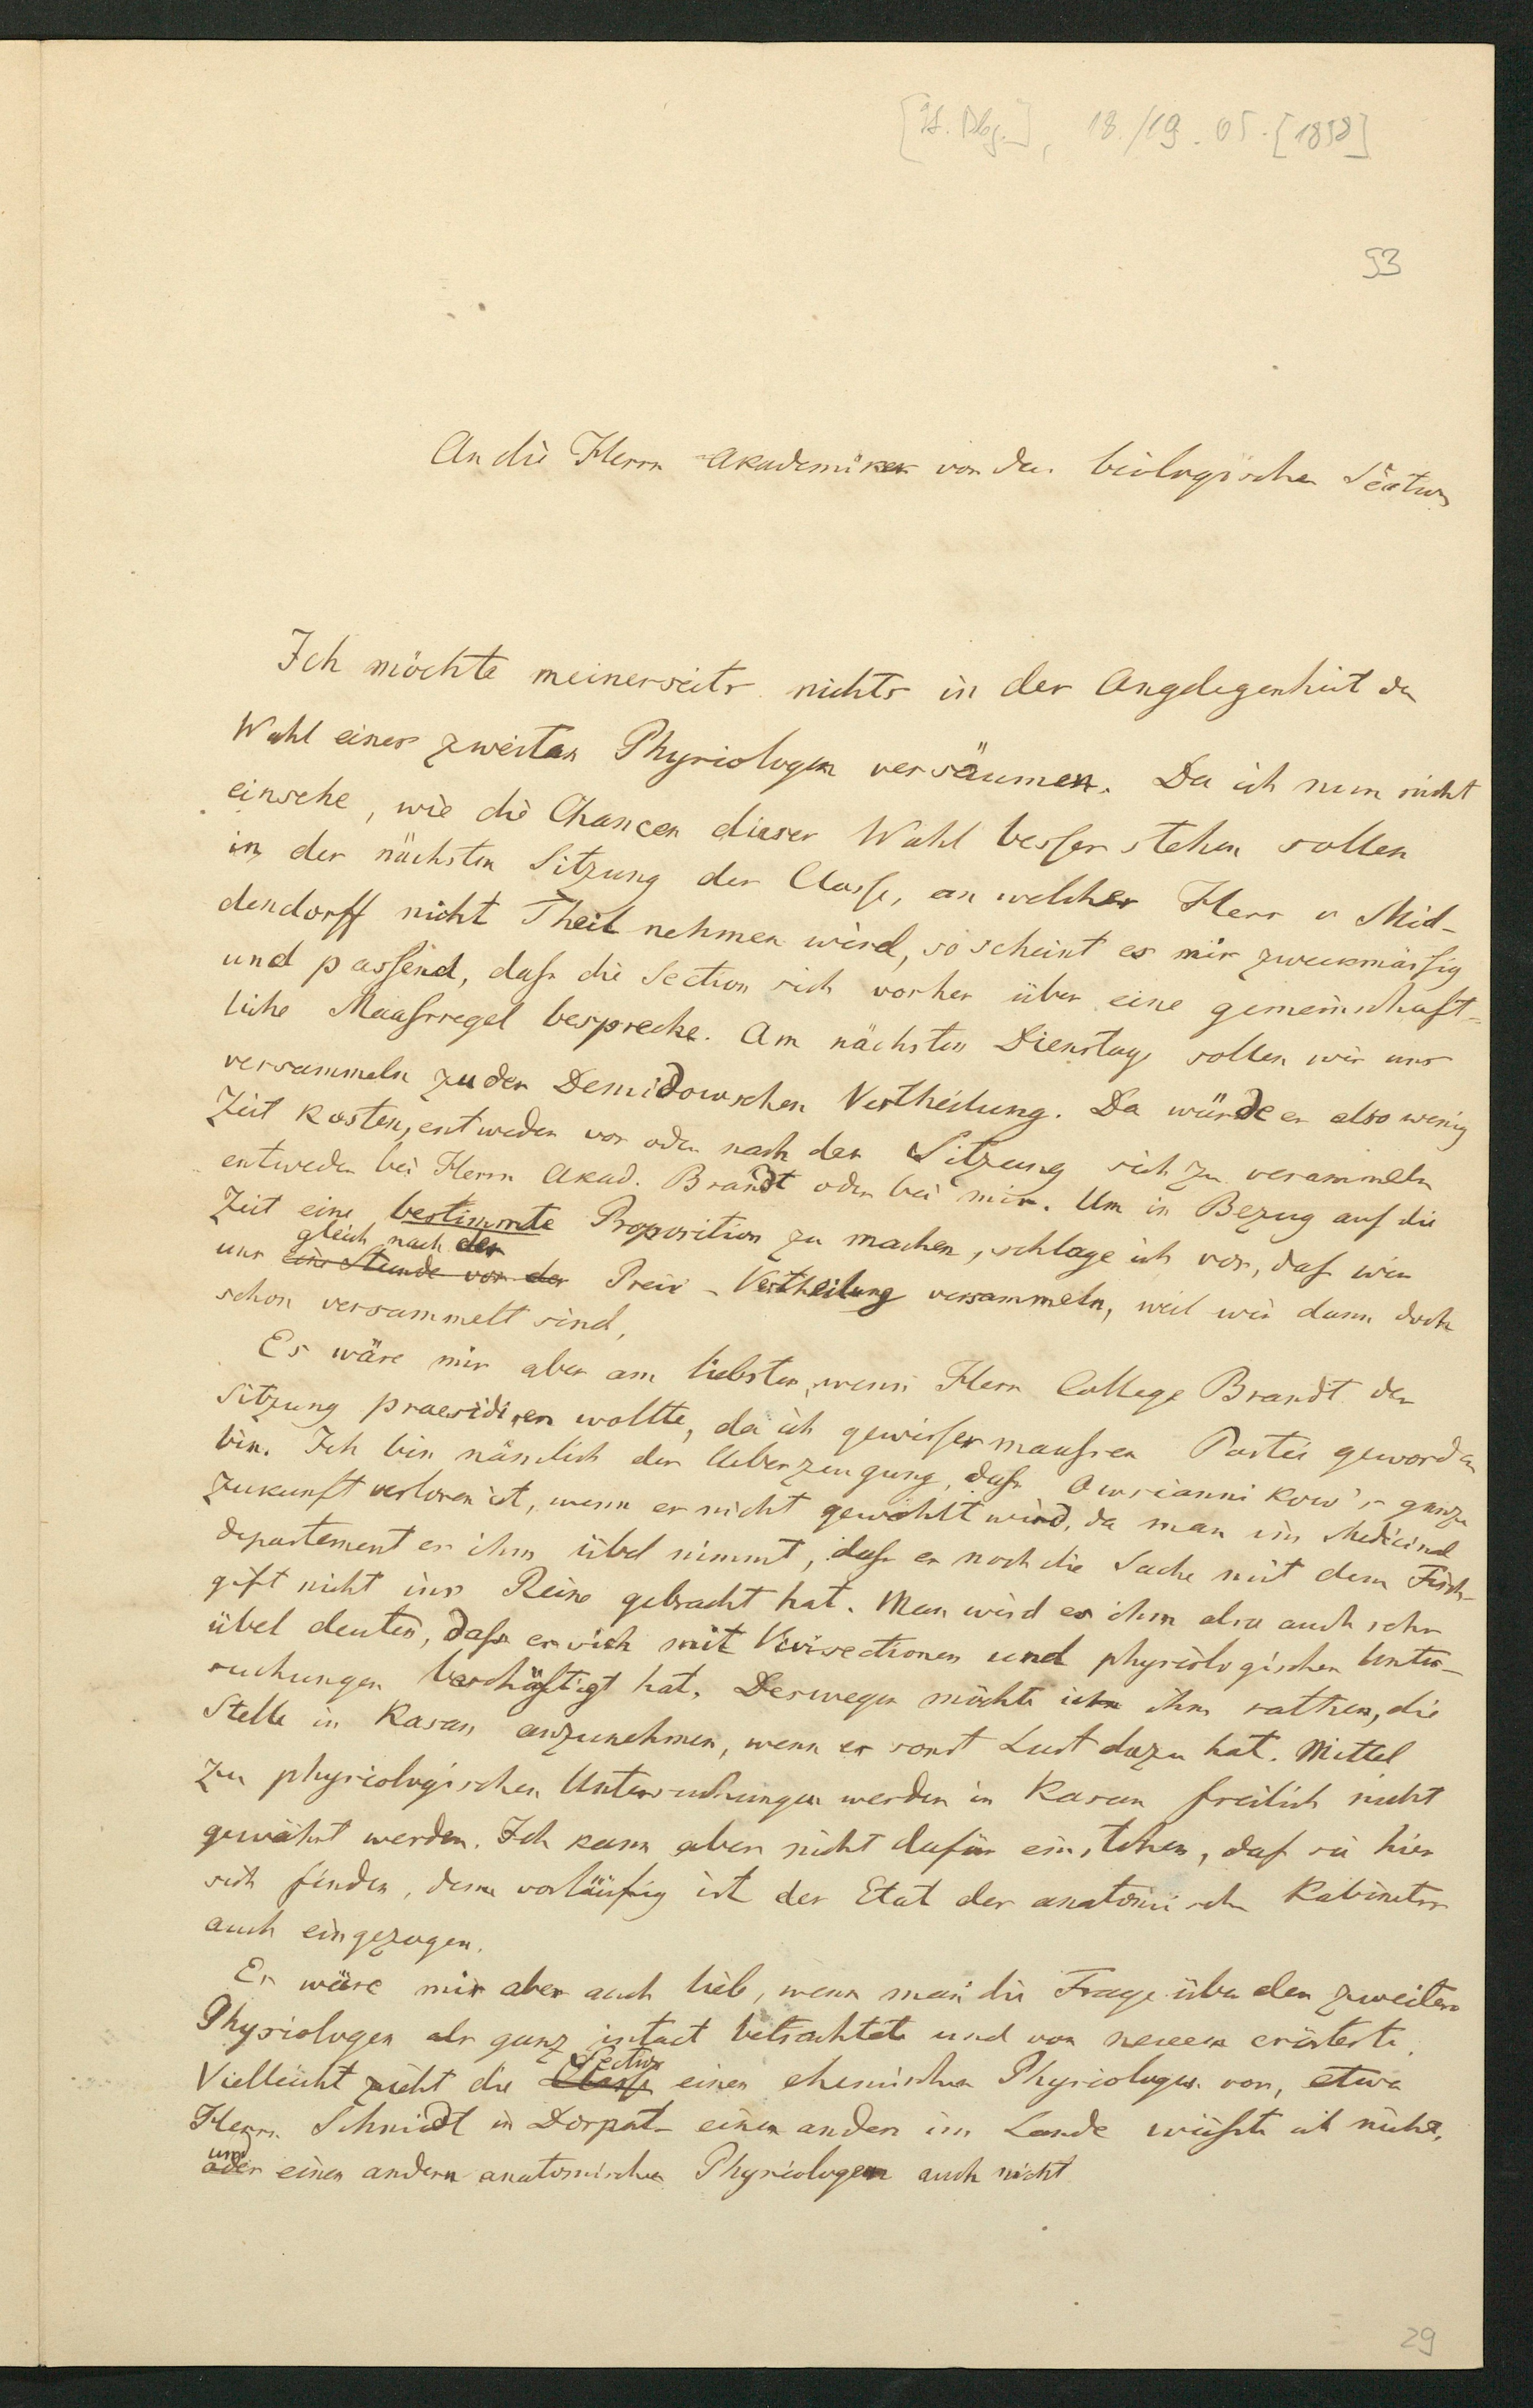 [St. Pbg.], 18./19. 05. [1858]
53
An die Herrn Akademiker von der biologischen Section
Ich möchte meinerseits nichts in der Angelegenheit der
Wahl eines zweiten Physiologen versäumen. Da ich nun nicht
einsehe, wie die Chancen dieser Wahl besser stehen sollen
in der nächsten Sitzung der Classe, an welcher Herr v Mid-
dendorff nicht Theil nehmen wird, so scheint es mir zweckmässig
und passend, dass die Section sich vorher über eine gemeinschaft-
liche Maassregel bespreche. Am nächsten Dienstag sollen wir uns
versammeln zu der Demidowschen Vertheilung. Da würde es also wenig
Zeit kosten, entweder vor oder nach der Sitzung sich zu verammeln
entweder bei Herrn Akad. Brandt oder bei mir. Um in Bezug auf die
Zeit eine bestimmte Proposition zu machen, schlage ich vor, dass wir
gleich nach der
uns eine Stunde vor der Preis-Vertheilung versammeln, weil wir dann doch
schon versammelt sind.
Es wäre mir aber am liebsten, wenn Herr College Brandt der
Sitzung praesidiren wollte, da ich gewissermaassen Partei geworden
bin. Ich bin nämlich der Ueberzeugung, dass Owsiannikow's ganze
Zukunft verloren ist, wenn er nicht gewählt wird, da man im Medicinal
departement es ihm übel nimmt, dass er noch die Sache mit dem Fisch-
gift nicht ins Reine gebracht hat. Man wird es ihm also auch sehr
übel deuten, dass er sich mit Vivisectionen und physiologischen Unter-
suchungen beschäftigt hat. Deswegen möchte ich ihm rathen, die
Stelle in Kasan anzunehmen, wenn er sonst Lust dazu hat. Mittel
zu physiologischen Untersuchungen werden in Kasan freilich nicht
gewährt werden. Ich kann aber nicht dafür einstehen, dass sie hier
sich finden, denn vorläufig ist der Etat des anatomischen Kabinets
auch eingezogen.
Es wäre mir aber auch lieb, wenn man die Frage über den zweiten
Physiologen als ganz intact betrachtete und von neuem erörterte.
Section
Vielleicht zieht die Classe einen chemischen Physiologen vor, etwa
Herrn Schmidt in Dorpat - einen andern im Lande wüsste ich nicht,
und
oder einen andern anatomischen Physiologen auch nicht
29